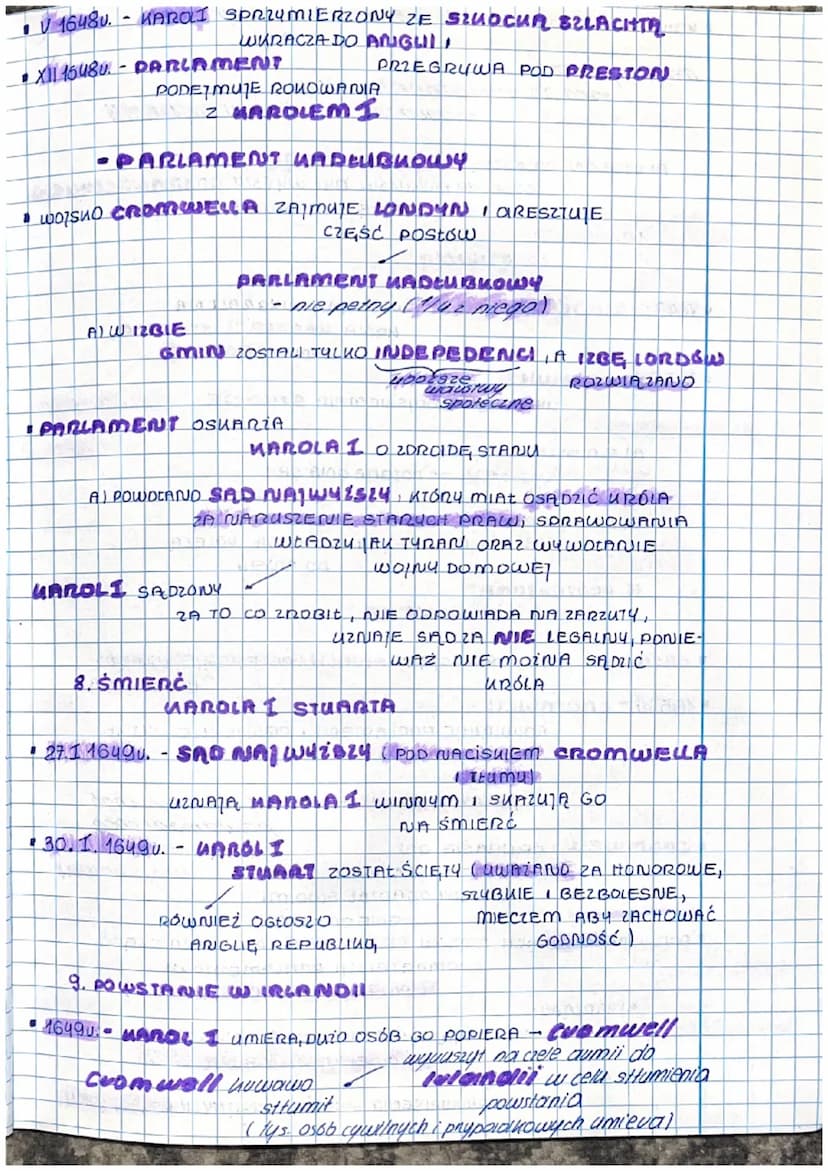 • V 1648r. - KAROL I SPRZYMIERZONY ZE SZKOCKĄ SZLACHTĄ
WKRACZA DO ANGLII I
PRZEGRYWA POD PRESTON
• XII 1648r. - PARLAMENT
PODEJMUJE ROKOWANIA
Z KAROLEM I
- PARLAMENT KADŁUBKOWY
• WOJSKO CROMWELLA ZAJMUJE LONDYN I ARESZTUJE
CZĘŚĆ POSŁÓW
PARLAMENT KADŁUBKOWY
- nie pełny (1/4 z niego)
A) W IZBIE
GMIN ZOSTALI TYLKO INDEPEDENCI, A IZBĘ LORDÓW
ROZWIĄZANO
uboższe
warstwy
społeczne
• PARLAMENT OSKARIA
KAROLA I O ZDRCIDĘ STANU
A) POWOŁANO SĄD NAJWYŻSZY, KTÓRY MIAŁ OSĄDZIĆ KRÓLA
ZA NARUSZENIE STARYCH PRAW, SPRAWOWANIA
WŁADZY JAK TYRAN ORAZ WYWOŁANIE
WOJNY DOMOWEJ
KAROL I SĄDZONY
ZA TO CO ZROBIŁ, NIE ODPOWIADA NA ZARZUTY,
UZNAJE SĄD ZA NIE LEGALNY, PONIE-
WAŻ NIE MOŻNA SĄDZIĆ
KRÓLA
8. ŚMIERĆ
KAROLA I STUARTA
• 27.I 1649r. - SĄD NAJWYŻSZY (POD NACISKIEM CROMWELLA
I TŁUMU)
UZNAJĄ KAROLA I WINNYM I SKAZUJĄ GO
NA ŚMIERĆ
• 30. I. 1649r. - KAROL I
STUART ZOSTAŁ ŚCIĘTY (UWAŻANO ZA HONOROWE,
SZYBKIE I BEZBOLESNE,
MIECZEM ABY ZACHOWAĆ
GODNOŚĆ)
RÓWNIEŻ OGŁOSZO
ANGLIĘ REPUBLIKĄ
9. POWSTANIE W IRLANDII
• 1649r. - KAROL I UMIERA, DUŻO OSÓB GO POPIERA → Cromwell
wyruszył na czele armii do
Irlandii w celu stłumienia
powstania
Cromwell krwawo
stłumił
(tys. osób cywilnych i przypadkowych umiera)